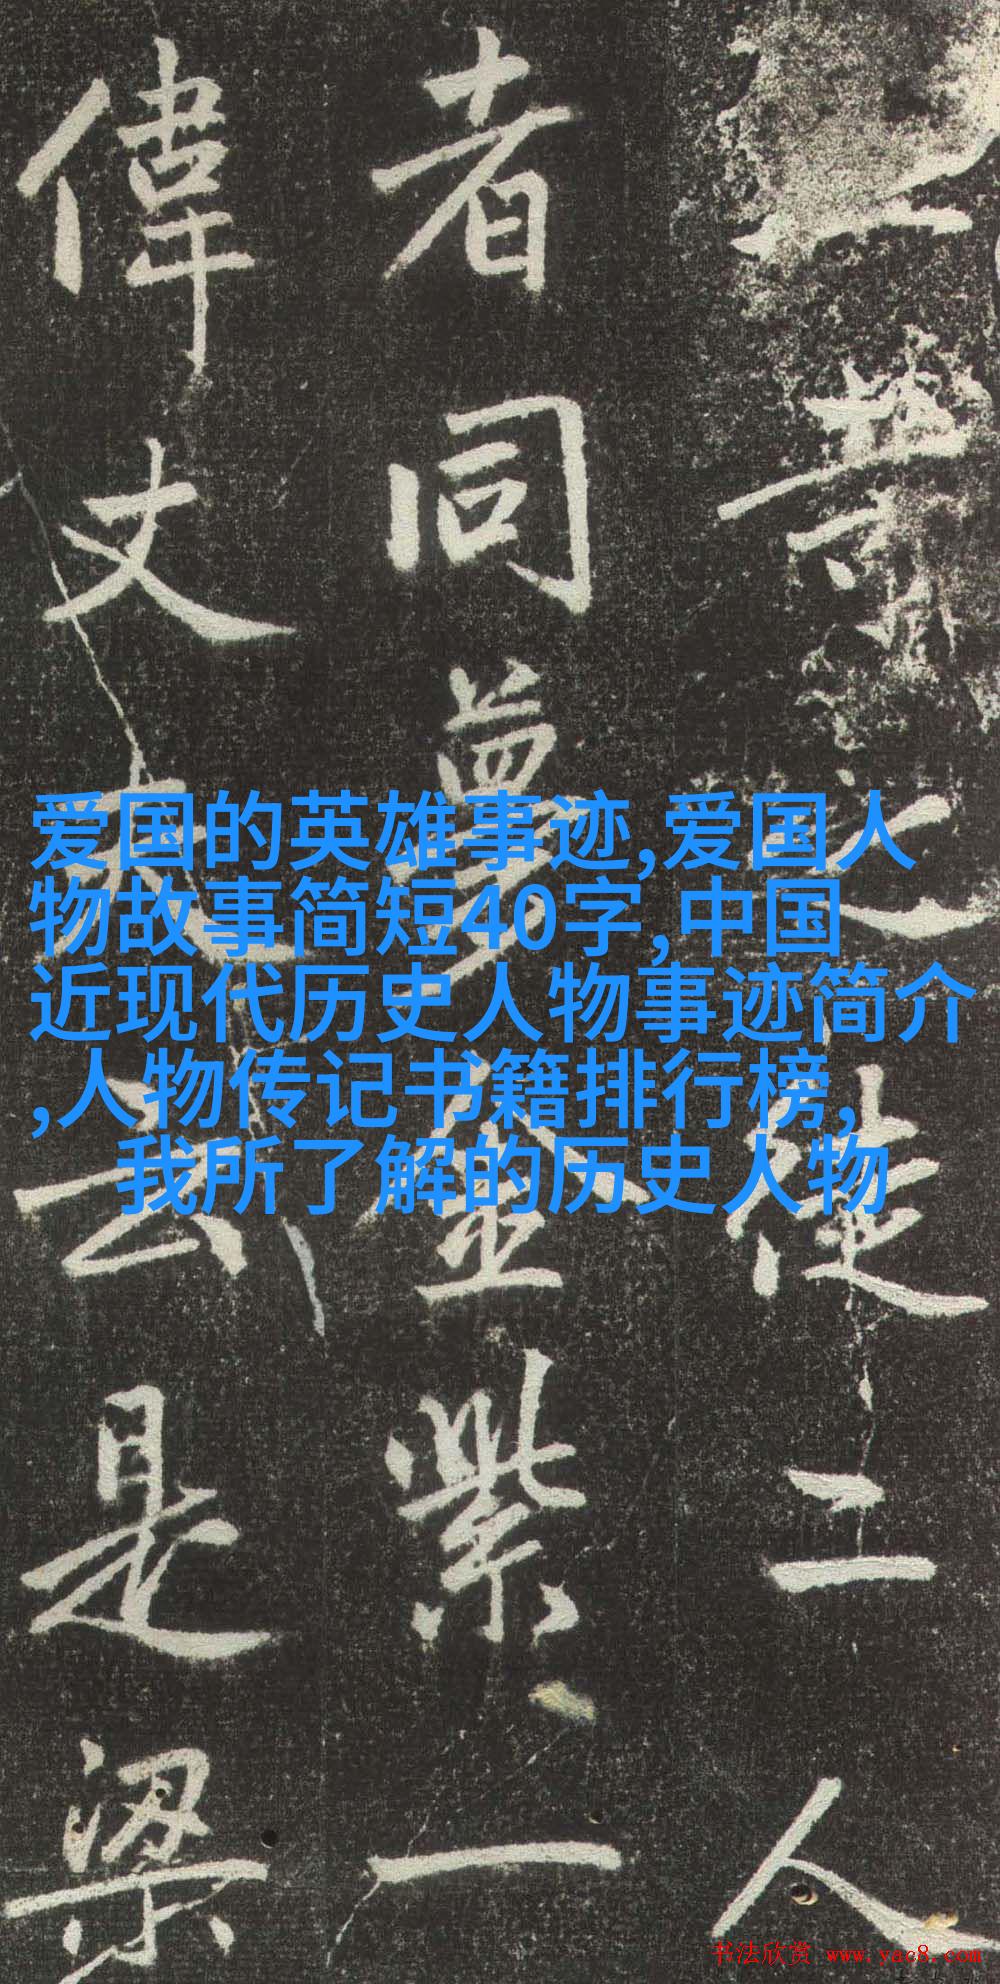 之徒二人
者同夢紫一
偉丈夫云是梁
爱国的英雄事迹,爱国人
物故事简短40字,中国
近现代历史人物事迹简介
,人物传记书籍排行榜,
我所了解的历史人物
书法欣赏 www.yac8.com